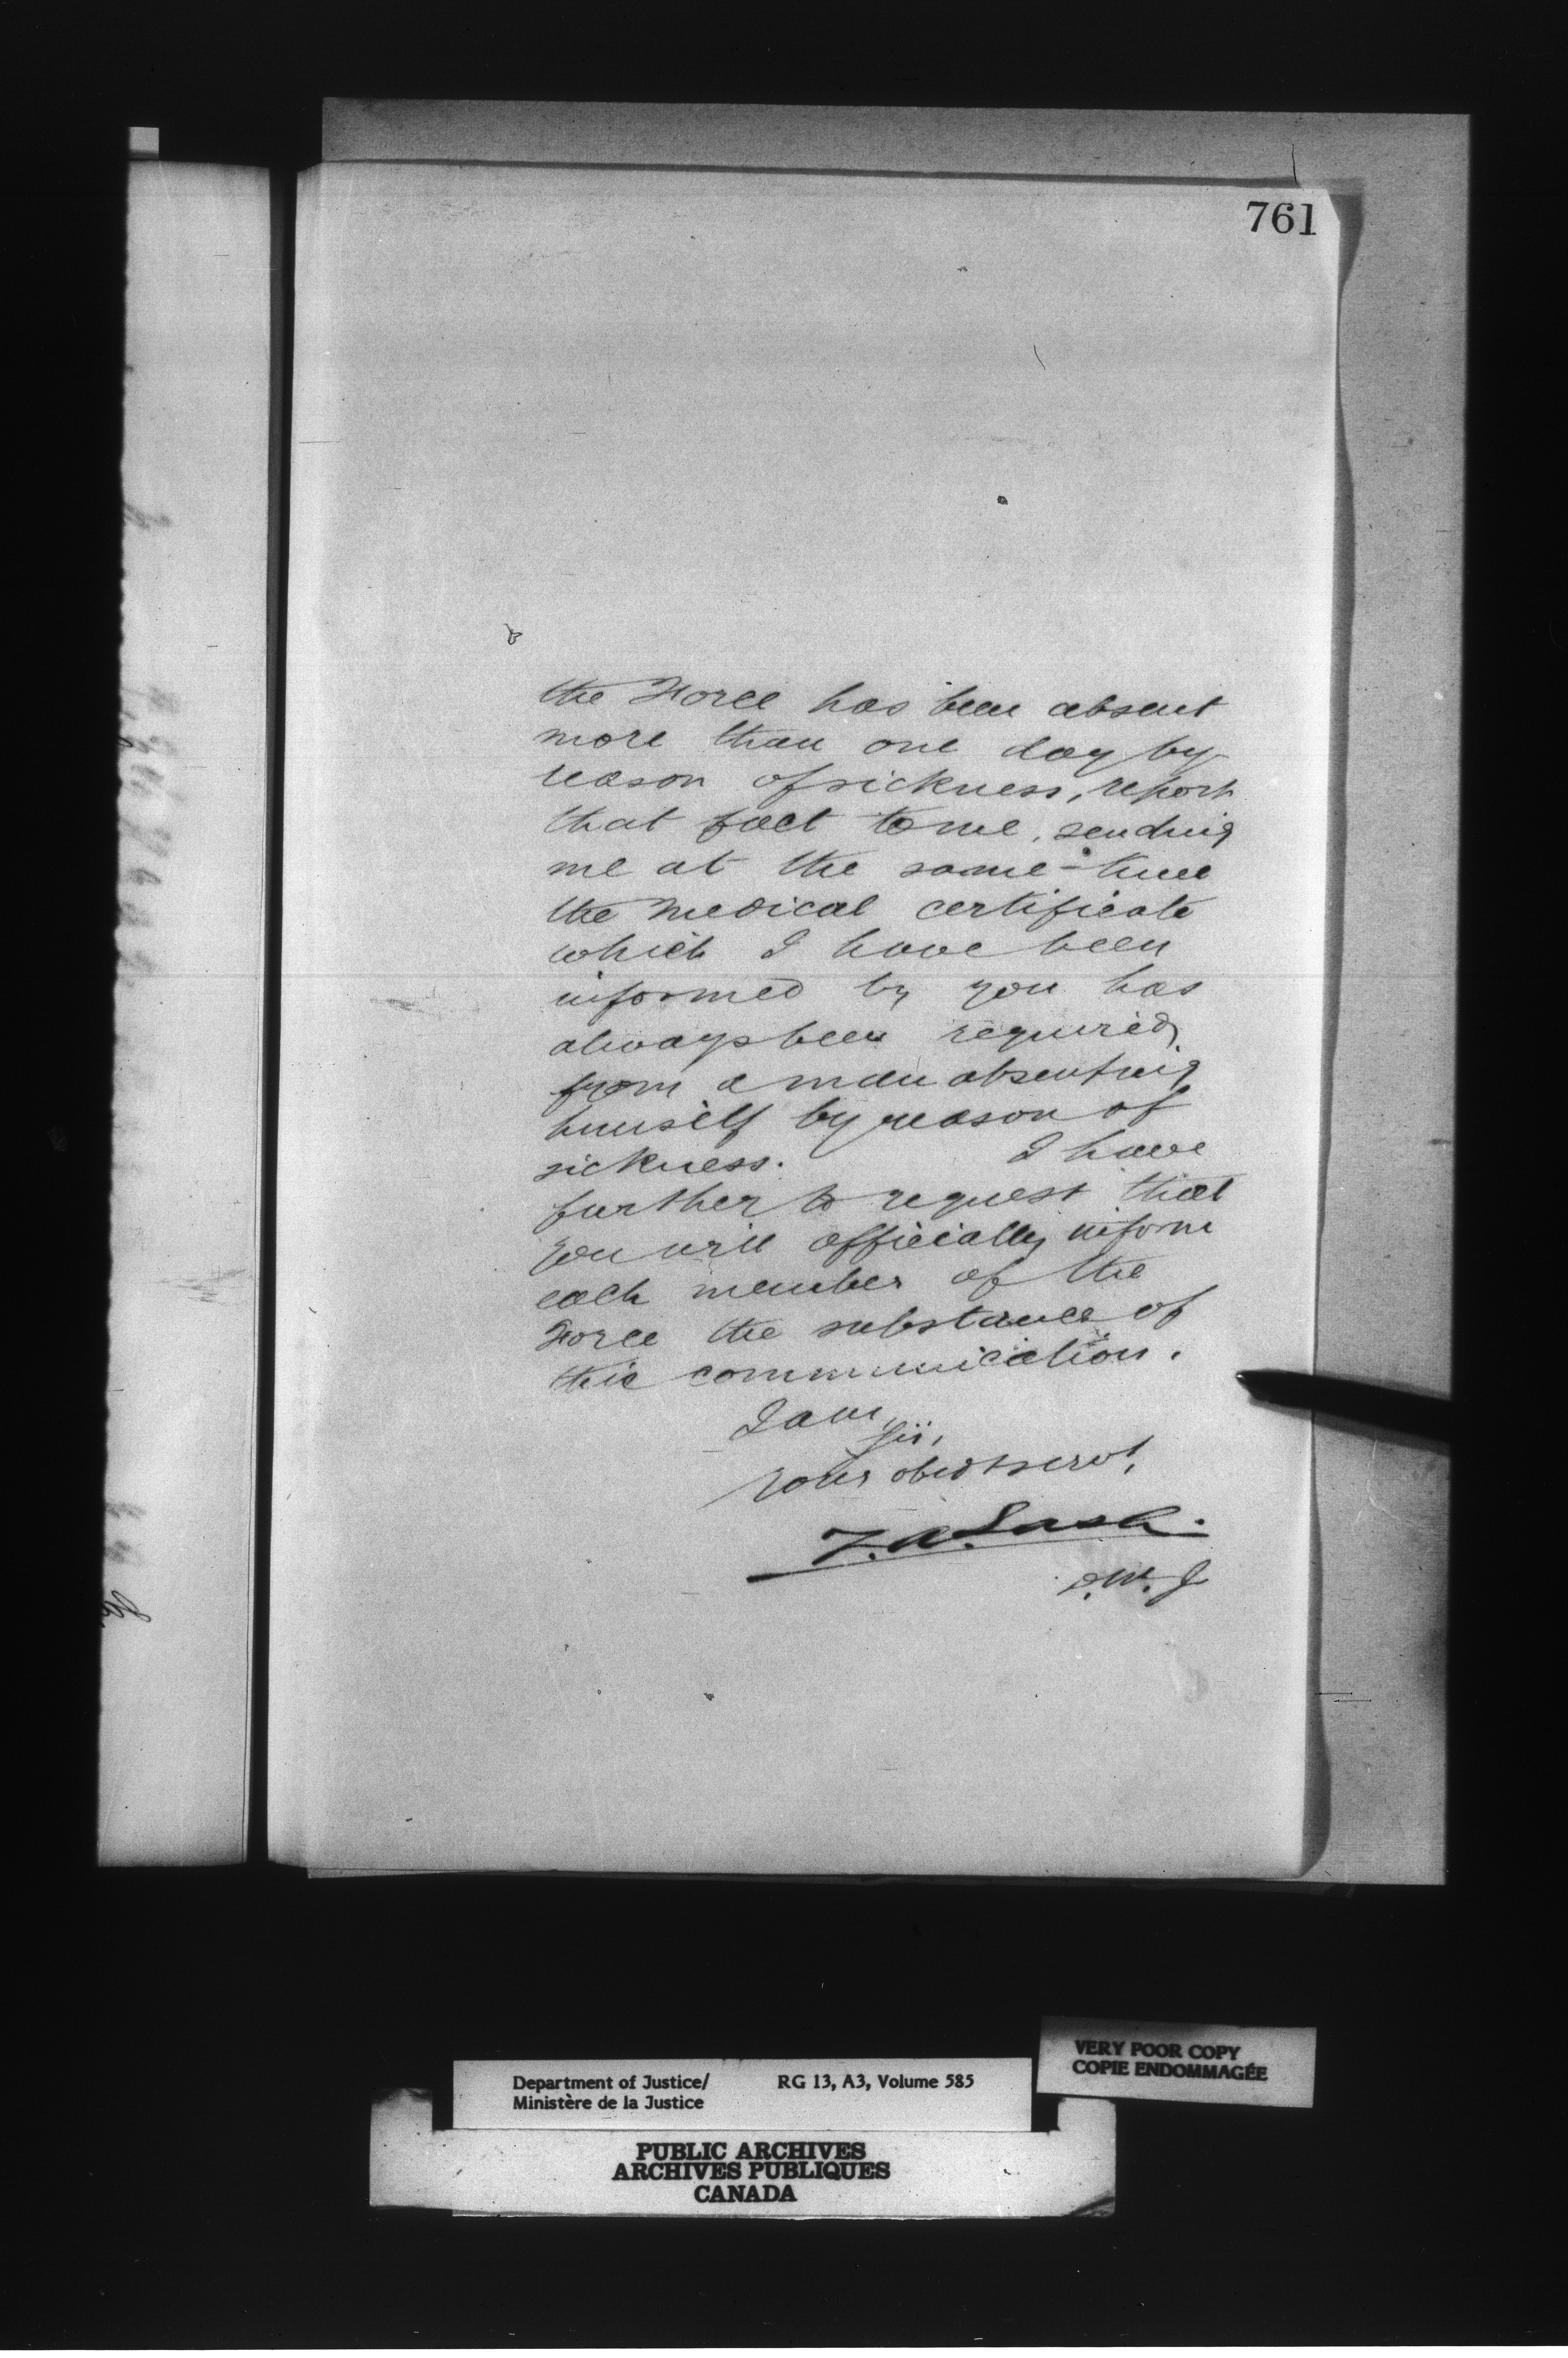 761
the Force has been absent
more than one day by
reason of sickness, report
that fact to me, sending
me at the same time
the medical certificate
which I have been
informed by you has
always been required
from a man absenting
himself by reason of
sickness. I have
further to request that
you will officially inform
each member of the
Force the substance of
this communication.
I am
Sir,
Your obedt servt,
Z. A. Lash.
D.M.J
VERY POOR COPY
COPIE ENDOMMAGÉE
Department of Justice/ RG 13, A3, Volume 585
Ministère de la Justice
PUBLIC ARCHIVES
ARCHIVES PUBLIQUES
CANADA